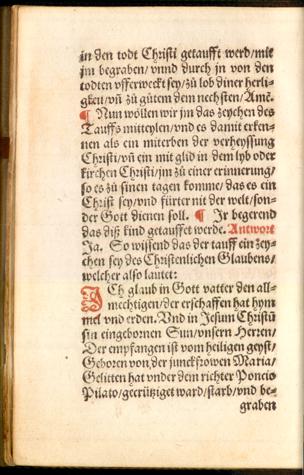 in den todt Christi getaufft werd/mit
jm begraben/vnnd durch jn von den
todten vfferweckt sey/zů lob diner herli-
gkeit/vñ zů gůtem dem nechsten/Amē.
¶ Nun wöllen wir jm das zeychen des
Tauffs mitteylen/vnd es damit erken-
nen als ein miterben der verheyssung
Christi/vñ ein mit glid in dem lyb oder
kirchen Christi/jm zů einer erinnerung/
so es zů sinen tagen komme/das es ein
Christ sey/vnd fürter nit der welt/son-
der Gott dienen soll. ¶ Ir begerend
das diß kind getauffet werde. Antwort
Ja. So wissend das der tauff ein zey-
chen sey des Christenlichen Glaubens/
welcher also lautet:
ICh glaub in Gott vatter den all-
mechtigen/der erschaffen hat hym
mel vnd erden. Vnd in Jesum Christū
sin eingebornen Sun/vnsern Herren/
Der empfangen ist vom heiligen geyst/
Geboren von der junckfrowen Maria/
Gelitten hat vnder dem richter Poncio
Pilato/gecrütziget ward/starb/vnd be-
graben